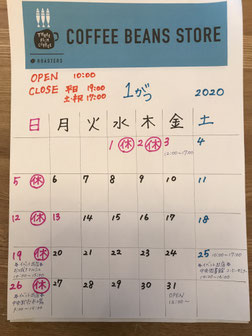 COFFEE BEANS STORE
ROASTERS
OPEN 10:00
CLOSE 平日 19:00
土・祝 17:00
1がつ
2020
日 月 火 水 木 金 土
1 休 2 休 3 4
10:00~17:00
5 休 6 7 8 9 10 11
12 休 13 14 15 16 17 18
19 休 20 21 22 23 24 25
26 休 27 28 29 30 31
OPEN